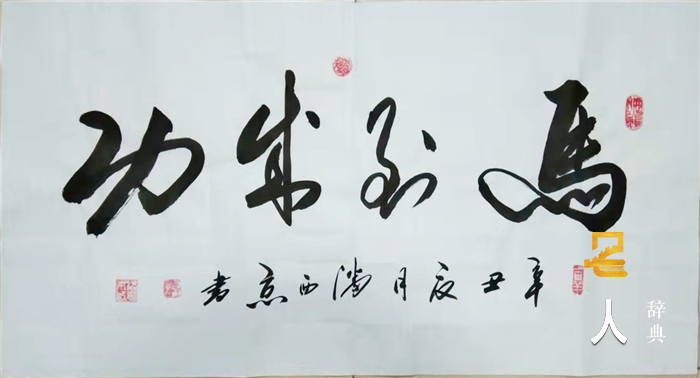 馬到成功
辛丑夏月西京书
名人辞典